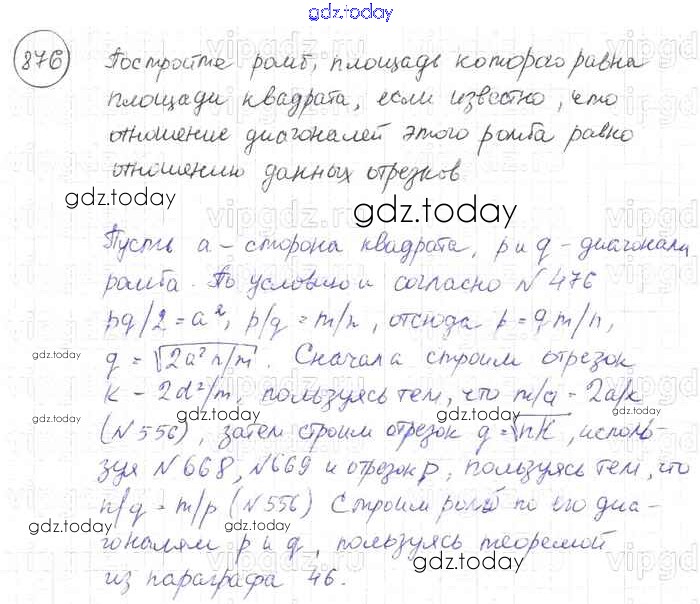 gdz.today
876 Постройте ромб, площадь которого равна
площади квадрата, если известно, что
отношение диагоналей этого ромба равно
отношению данных отрезков.
gdz.today
gdz.today
Пусть a – сторона квадрата, p и q – диагонали
ромба. По условию и согласно №476
pq/2 = a², p/q = m/n, отсюда p = qm/n,
q = √2a²n/m. Сначала строим отрезок
gdz.today
gdz.today
k – 2d²/m, пользуясь тем, что m/a = 2a/k
gdz.today
gdz.today
gdz.today
(№556), затем строим отрезок q = √nK, исполь-
зуя №668, №669 и отрезок p, пользуясь тем, что
n/q = m/p (№556) Строим ромб по его диа-
gdz.today
gdz.today
gdz.today
гоналям p и q, пользуясь теоремой
из параграфа 46.